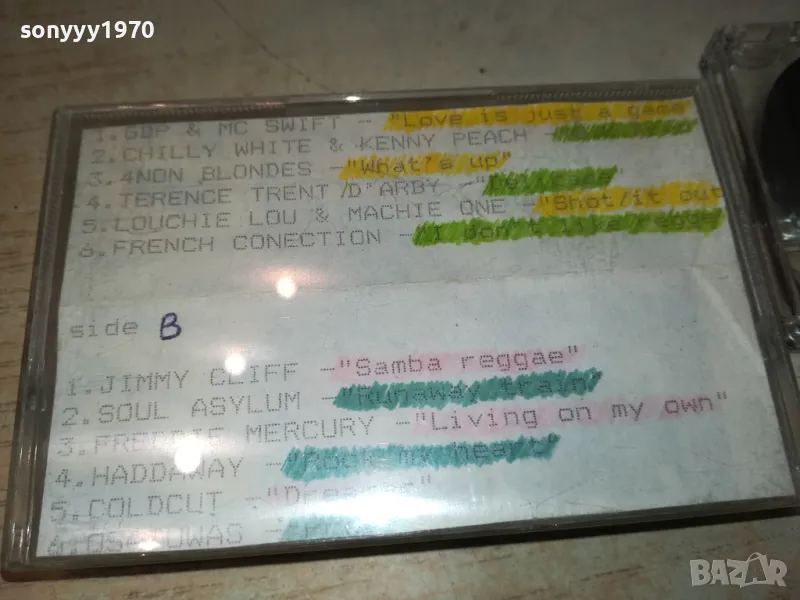 sonyyy1970
1.GDP & MC SWIFT - "Love is just a game
2.CHILLY WHITE & KENNY PEACH -
3.4NON BLONDES -"What's up"
4.TERENCE TRENT D'ARBY -"Delicate"
5.LOUCHIE LOU & MACHIE ONE -"Shot/it out
6.FRENCH CONECTION -"I don't like regge
side B
1.JIMMY CLIFF -"Samba reggae"
2.SOUL ASYLUM -"Runaway train"
3.FREDDIE MERCURY -"Living on my own"
4.HADDAWAY -"Rock my heart"
5.COLDCUT -"Dreamer"
6.
BAZAR